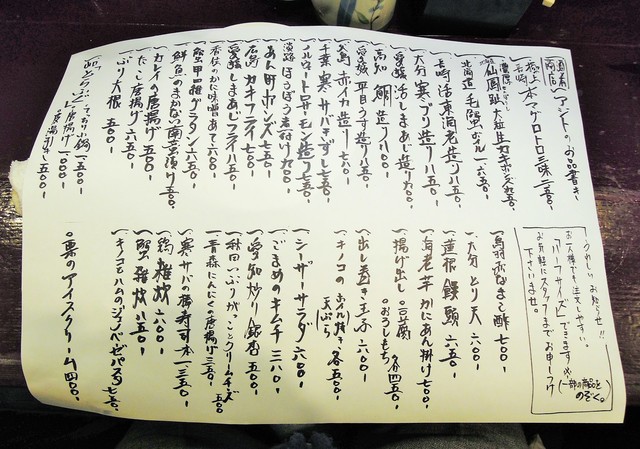 道玄坂商店 アジトのお品書き
極上 長崎 本マグロトロ三昧 二二五〇-
仙鳳趾 大粒生カキポン
北海道 毛蟹ボイル 一、六五〇-
長崎 活車海老造り 八五〇-
大分 寒ぶり造り 八五〇-
愛媛 活しまあじ造り 九〇〇-
高知 鯛造り 八〇〇-
愛媛 平目うす造り 八五〇-
赤イカ造り 七八〇-
千葉 寒サバきずし 七五〇-
ノルウェートロサーモン造り 七五〇-
淡路 ほうぼう煮付け 九〇〇-
あん肝ポンズ 七五〇-
広島 カキフライ 七〇〇-
愛媛しまあじフライ 八五〇-
香住のかに味噌あて 六〇〇-
蟹甲羅グラタン 一、一五〇-
鮮魚のまかない南蛮漬け 五五〇-
カレイの唐揚げ 五五〇-
たこ唐揚げ 六五〇-
ぶり大根 五五〇-
とらふぐ てっちり小鍋 一、五〇〇-
唐揚げ 一、〇〇〇-
うれしいお知らせ!!
お一人様でも注文しやすい。
「ハーフサイズ」できます※
(一部の商品をのぞく。)
お気軽にスタッフまでお申しつけ
下さいませ。
鳥羽赤なまこ酢 七〇〇-
大分 とり天 六〇〇-
蓮根饅頭 六五〇-
海老芋かにあん掛け 七〇〇-
揚げ出し 豆腐 おろしもち 各四五〇-
出し巻き玉子 六〇〇-
キノコの ホイル焼き 天ぷら 各五〇〇-
シーザーサラダ 六〇〇-
ごまめのキムチ 三八〇-
愛知炒り銀杏 五〇〇-
秋田いぶりがっことクリームチーズ 五〇〇-
青森にんにくの唐揚げ 三五〇-
寒サバの棒寿司 一本 一、三五〇-
鶏雑炊 六八〇-
蟹雑炊 八五〇-
キノコとハムのジェノベーゼパスタ 七五〇-
栗のアイスクリーム 四〇〇-